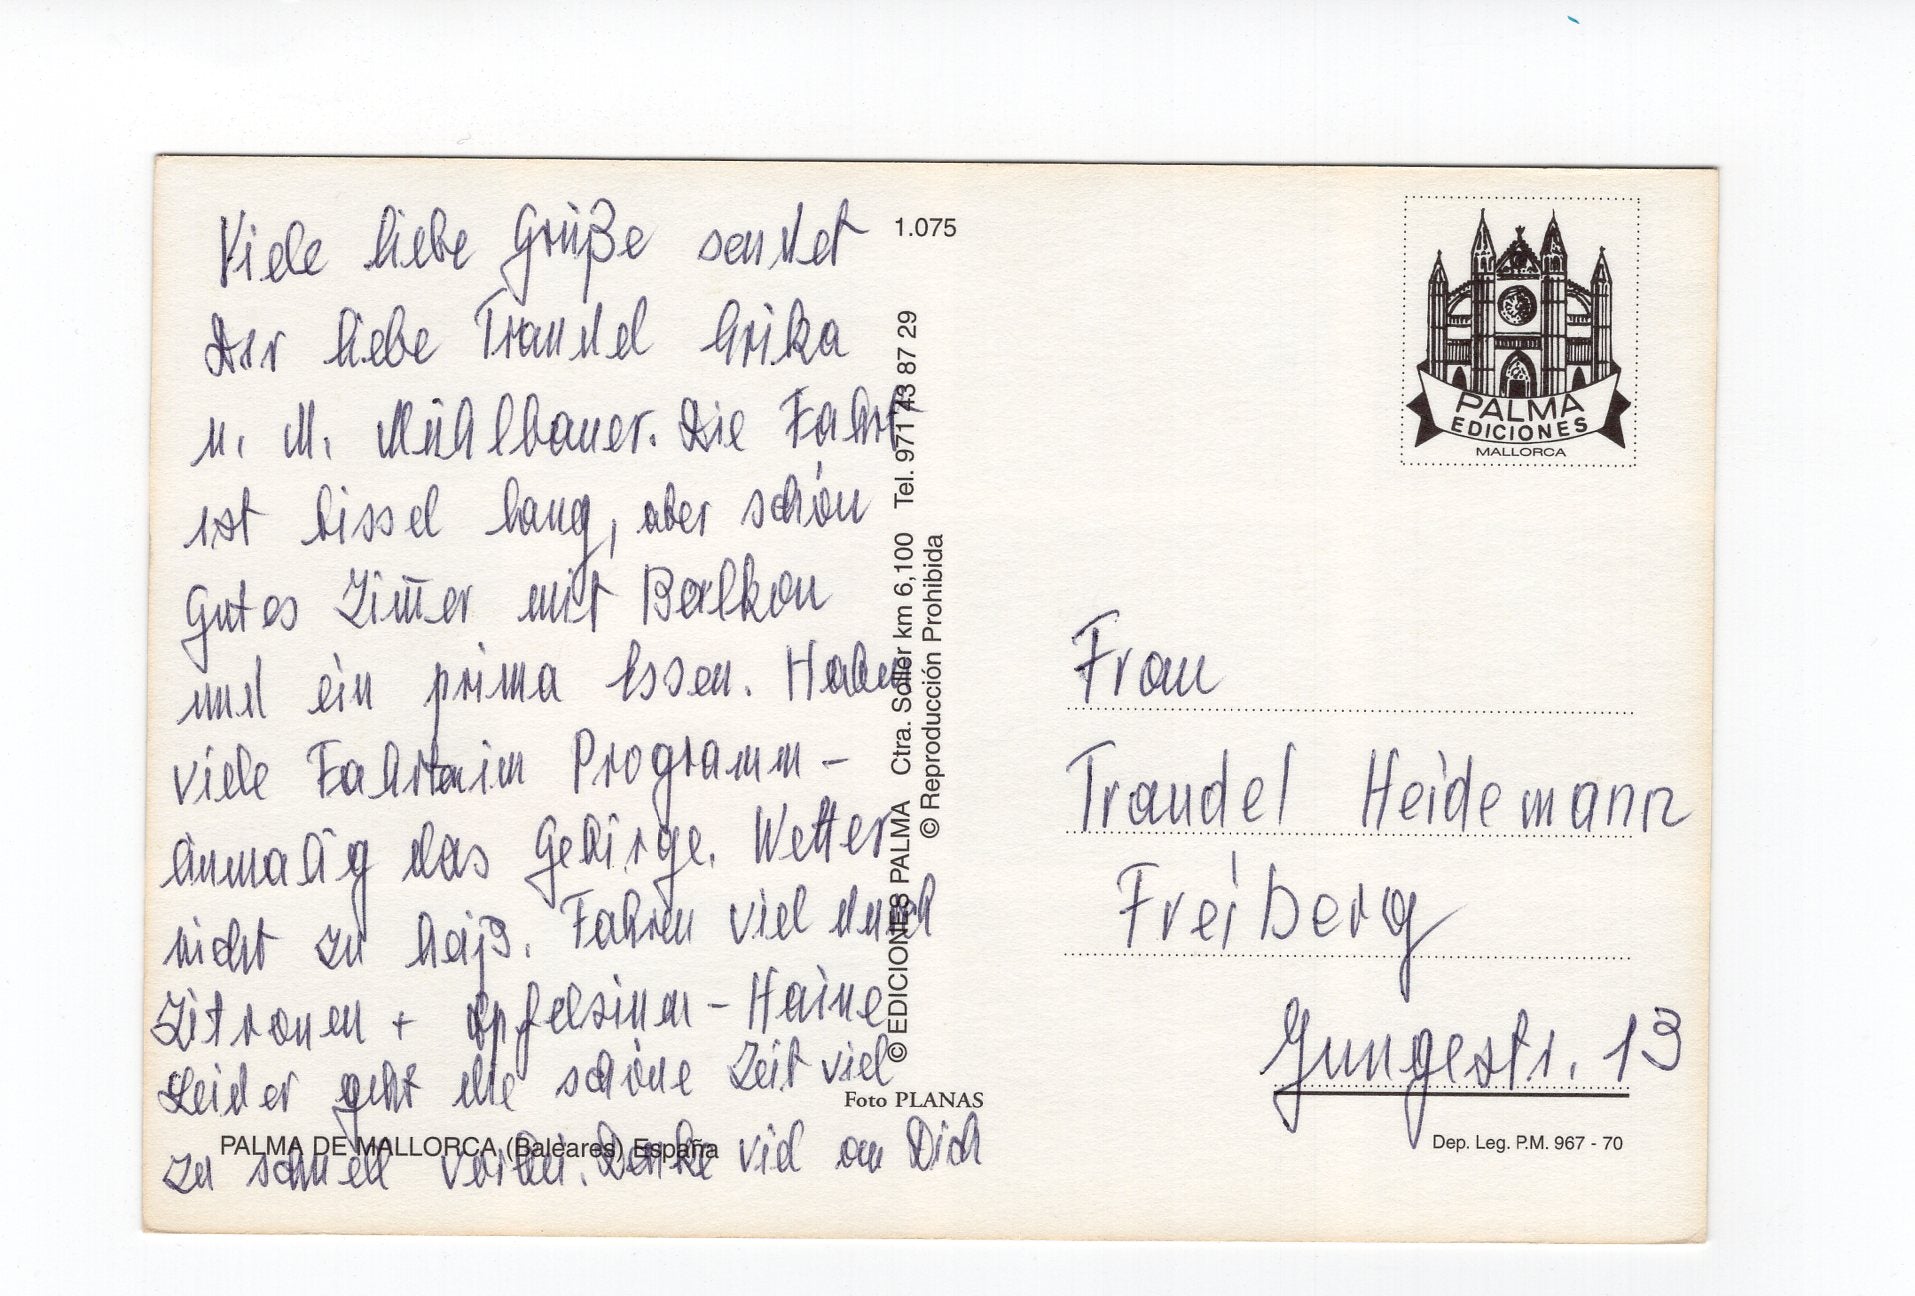 Viele liebe Grüße sendet
Dir liebe Traudel Erika
u. M. Mühlbauer. Die Fahrt
ist bissel lang, aber schön
Gutes Zim̅er mit Balkon
und ein prima Essen. Haben
viele Fahrten im Programm –
einmalig das Gebirge. Wetter
nicht zu heiß. Fahren viel durch
Zitronen + Apfelsinen – Haine
Leider geht die schöne Zeit viel
zu schnell vorbei. Denke viel an Dich
PALMA DE MALLORCA (Baleares) España
1.075
© EDICIONES PALMA Ctra. Soller km 6,100 Tel. 971 43 87 29
© Reproducción Prohibida
Foto PLANAS
PALMA
EDICIONES
MALLORCA
Frau
Traudel Heidemann
Freiberg
Gungestr. 13
Dep. Leg. P.M. 967 - 70